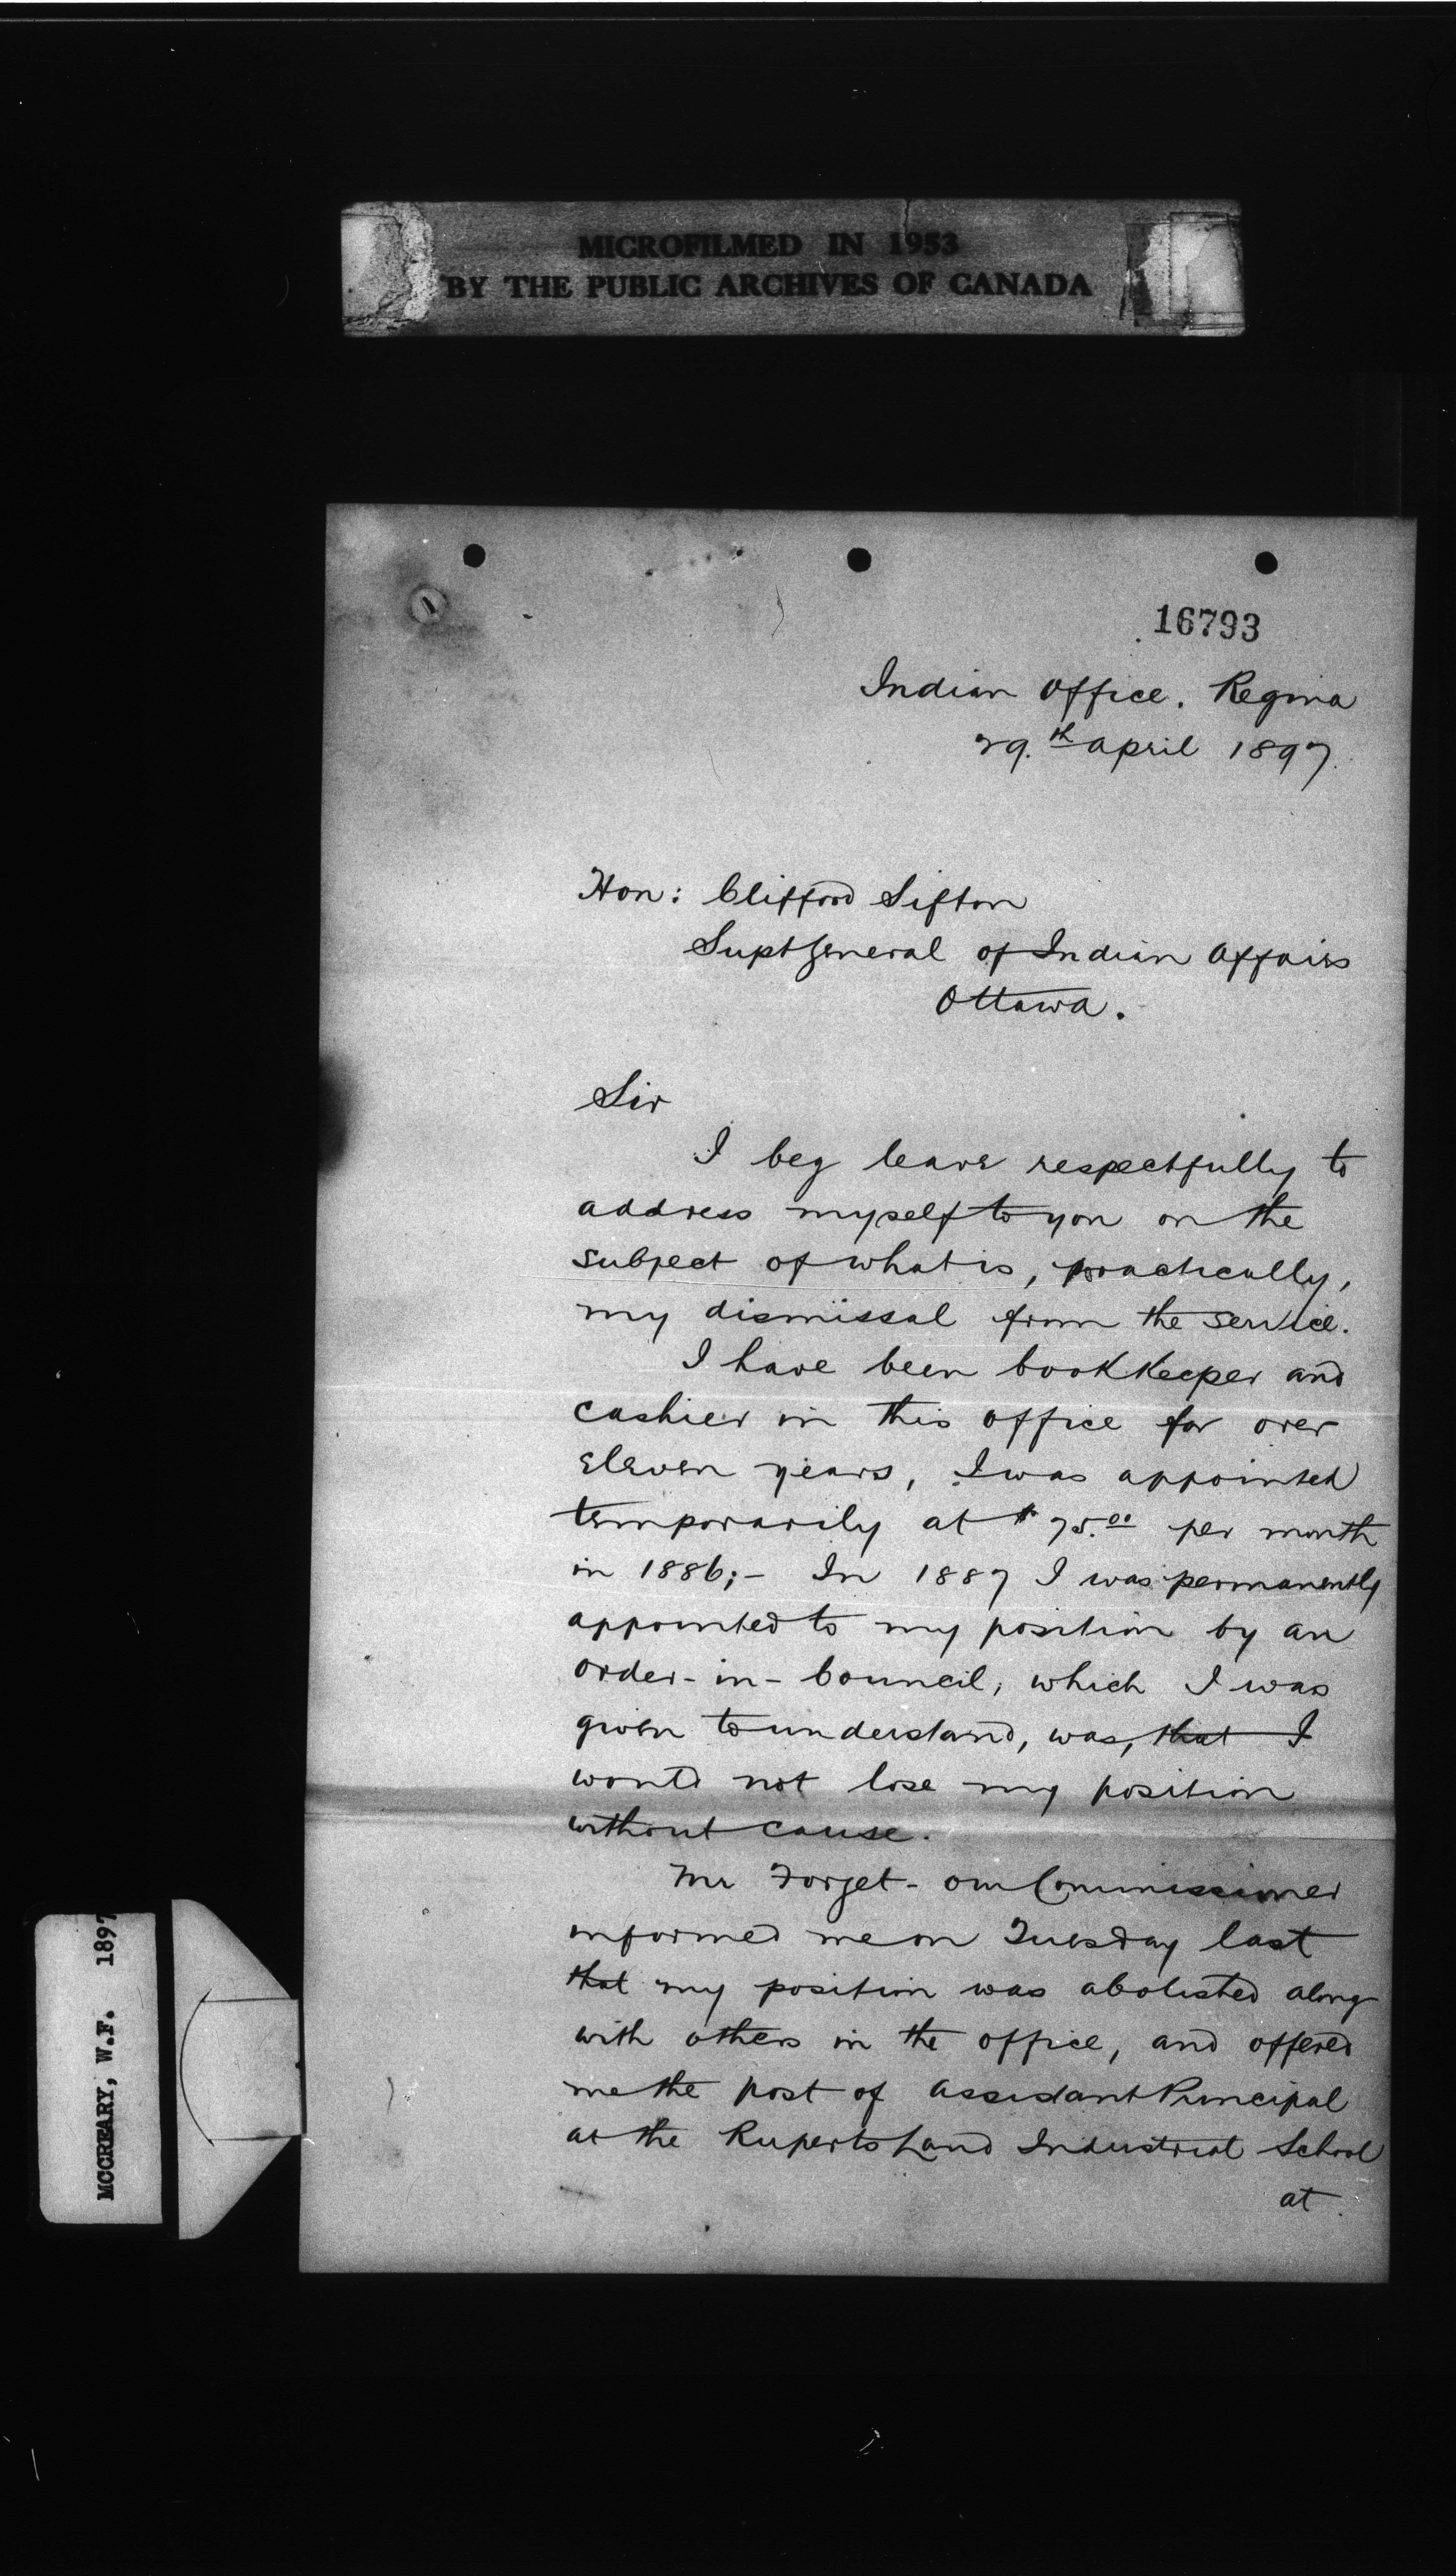 MICROFILMED IN 1953
BY THE PUBLIC ARCHIVES OF CANADA
16793
Indian Office. Regina
29.th April 1897.
Hon: Clifford Sifton
Supt General of Indian Affairs
Ottawa.
Sir
I beg leave respectfully to
address myself to you on the
subject of what is, practically,
my dismissal from the service.
I have been bookkeeper and
cashier in this office for over
eleven years, I was appointed
temporarily at $75.00 per month
in 1886;- In 1887 I was permanently
appointed to my position by an
order-in-Council, which I was
given to understand, was, that I
would not lose my position
without cause.
Mr Forget - our Commissioner
informed me on Tuesday last
that my position was abolished along
with others in the office, and offered
me the post of Assistant Principal
at the Ruperts Land Industrial School
at
MCCREARY, W.F. 1897